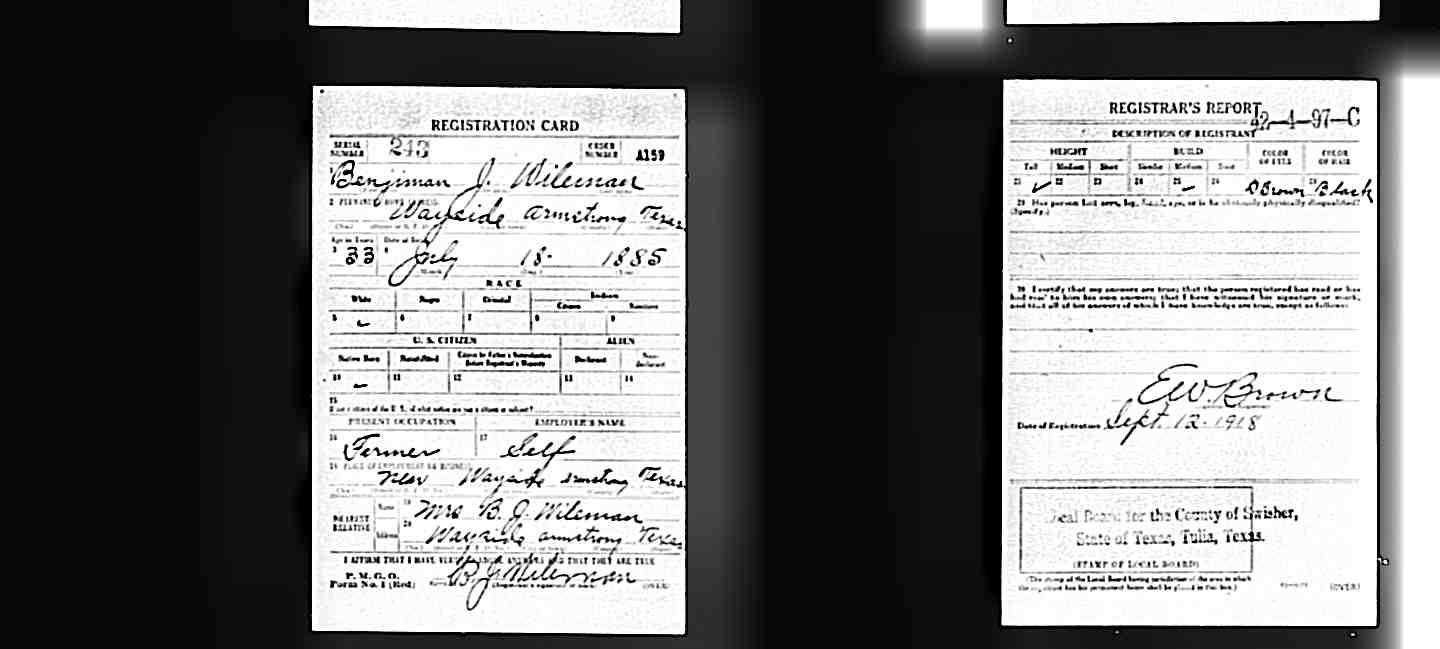 REGISTRATION CARD
SERIAL NUMBER 243 ORDER NUMBER A159
Benjiman J. Wileman
2 PERMANENT HOME ADDRESS
Wayside Armstrong Texas
Age in Years Date of Birth
3 33 4 July 18- 1885
(Month.) (Day.) (Year.)
RACE
White Negro Oriental Indian
Citizen Noncitizen
5 6 7 8 9
U. S. CITIZEN ALIEN
Native Born Naturalized Citizen by Father's Naturalization Before Registrant's Majority Declarant Non-declarant
10 11 12 13 14
15
If not a citizen of the U. S., of what nation are you a citizen or subject?
PRESENT OCCUPATION EMPLOYER'S NAME
16 Farmer 17 Self
18 PLACE OF EMPLOYMENT OR BUSINESS
near Wayside Armstrong Texas
NEAREST RELATIVE Name 19 Mrs B. J. Wileman
Address 20 Wayside Armstrong Texas
I AFFIRM THAT I HAVE VERIFIED ABOVE ANSWERS AND THAT THEY ARE TRUE
P. M. G. O.
Form No. 1 (Red) B. J. Wileman (OVER)
REGISTRAR'S REPORT
42-4-97-C
DESCRIPTION OF REGISTRANT
HEIGHT BUILD COLOR OF EYES COLOR OF HAIR
Tall Medium Short Slender Medium Stout
21 22 23 24 25 26 D Brown Black
29 Has person lost arm, leg, hand, eye, or is he obviously physically disqualified?
(Specify.)
30 I certify that my answers are true; that the person registered has read or has
had read to him his own answers; that I have witnessed his signature or mark,
and that all of his answers of which I have knowledge are true, except as follows:
E. W. Brown
Date of Registration Sept. 12-1918
Local Board for the County of Swisher,
State of Texas, Tulia, Texas.
(STAMP OF LOCAL BOARD)
(The stamp of the Local Board having jurisdiction of the area in which
the registrant has his permanent home shall be placed in this box.)
(OVER)